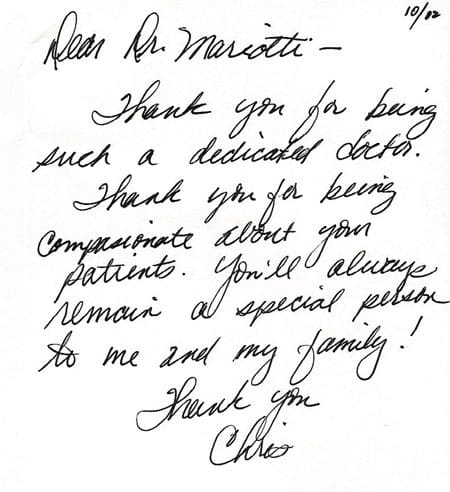 10/02
Dear Dr. Mariotti –
Thank you for being
such a dedicated doctor.
Thank you for being
compasionate about your
patients. You'll always
remain a special person
to me and my family!
Thank you
Chris